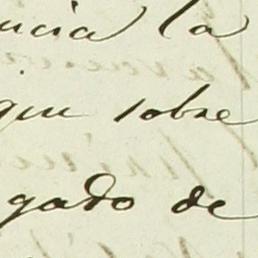 ncia la
que sobre
gado de